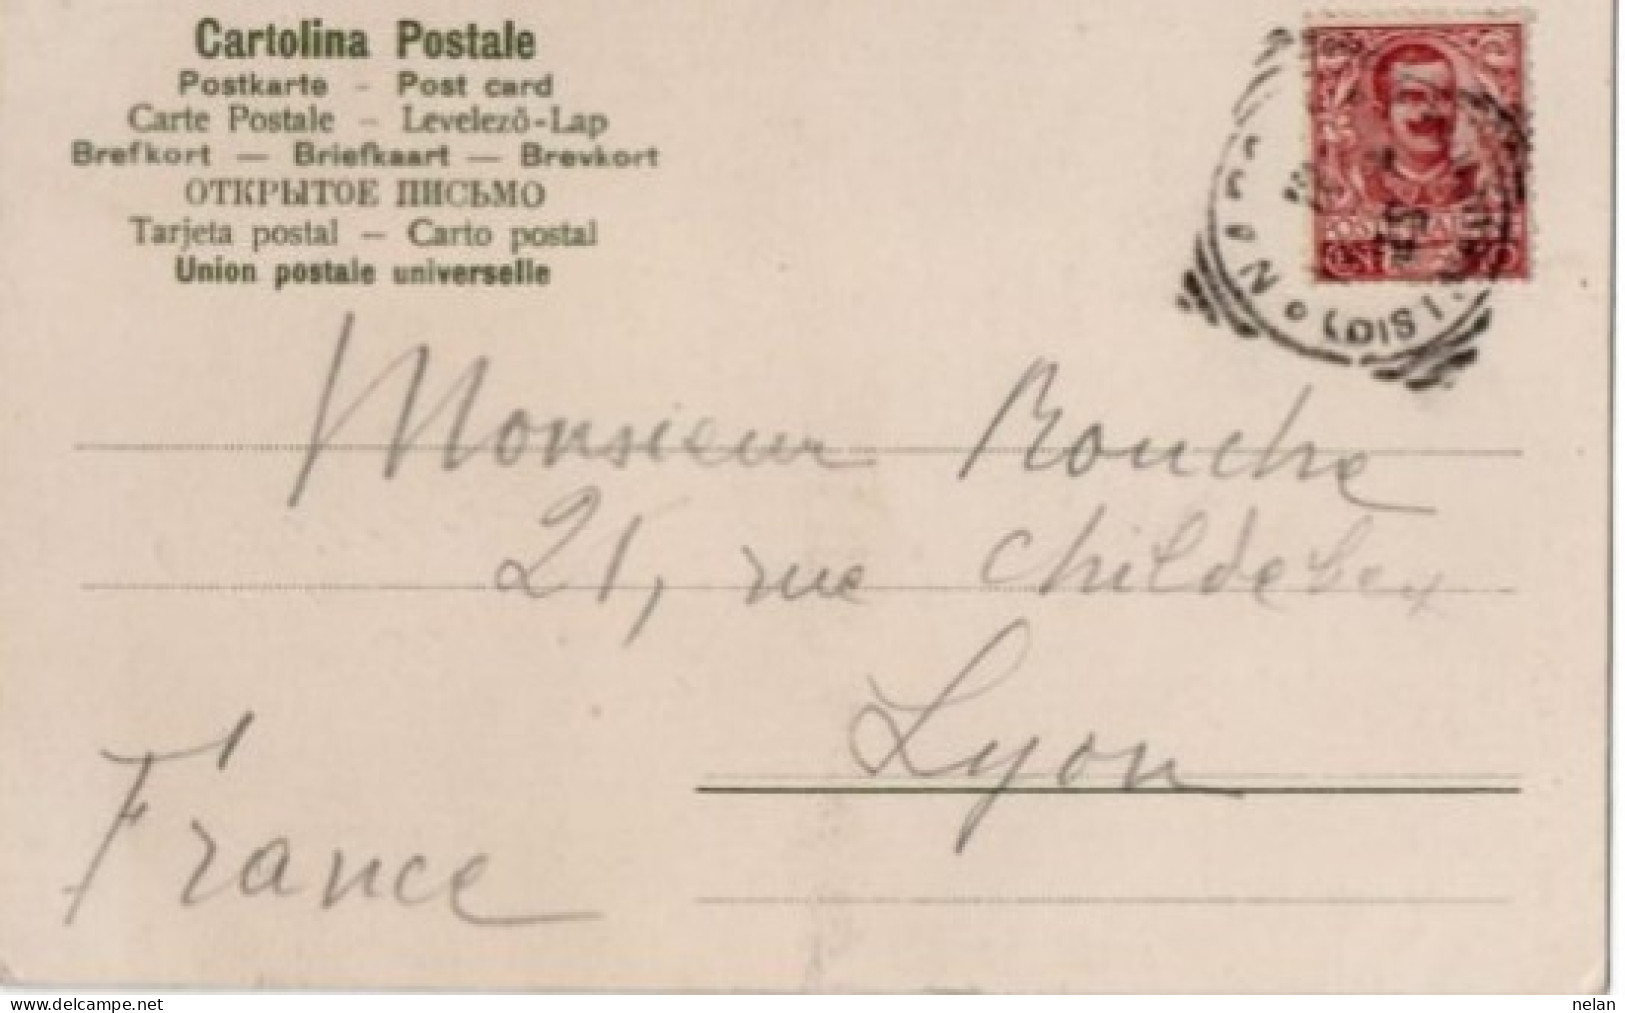 Cartolina Postale
Postkarte - Post card
Carte Postale - Levelezö-Lap
Brefkort — Briefkaart — Brevkort
ОТКРЫТОЕ ПИСЬМО
Tarjeta postal — Carto postal
Union postale universelle
Monsieur Rouche
21, rue Childebex
Lyon
France
nelan